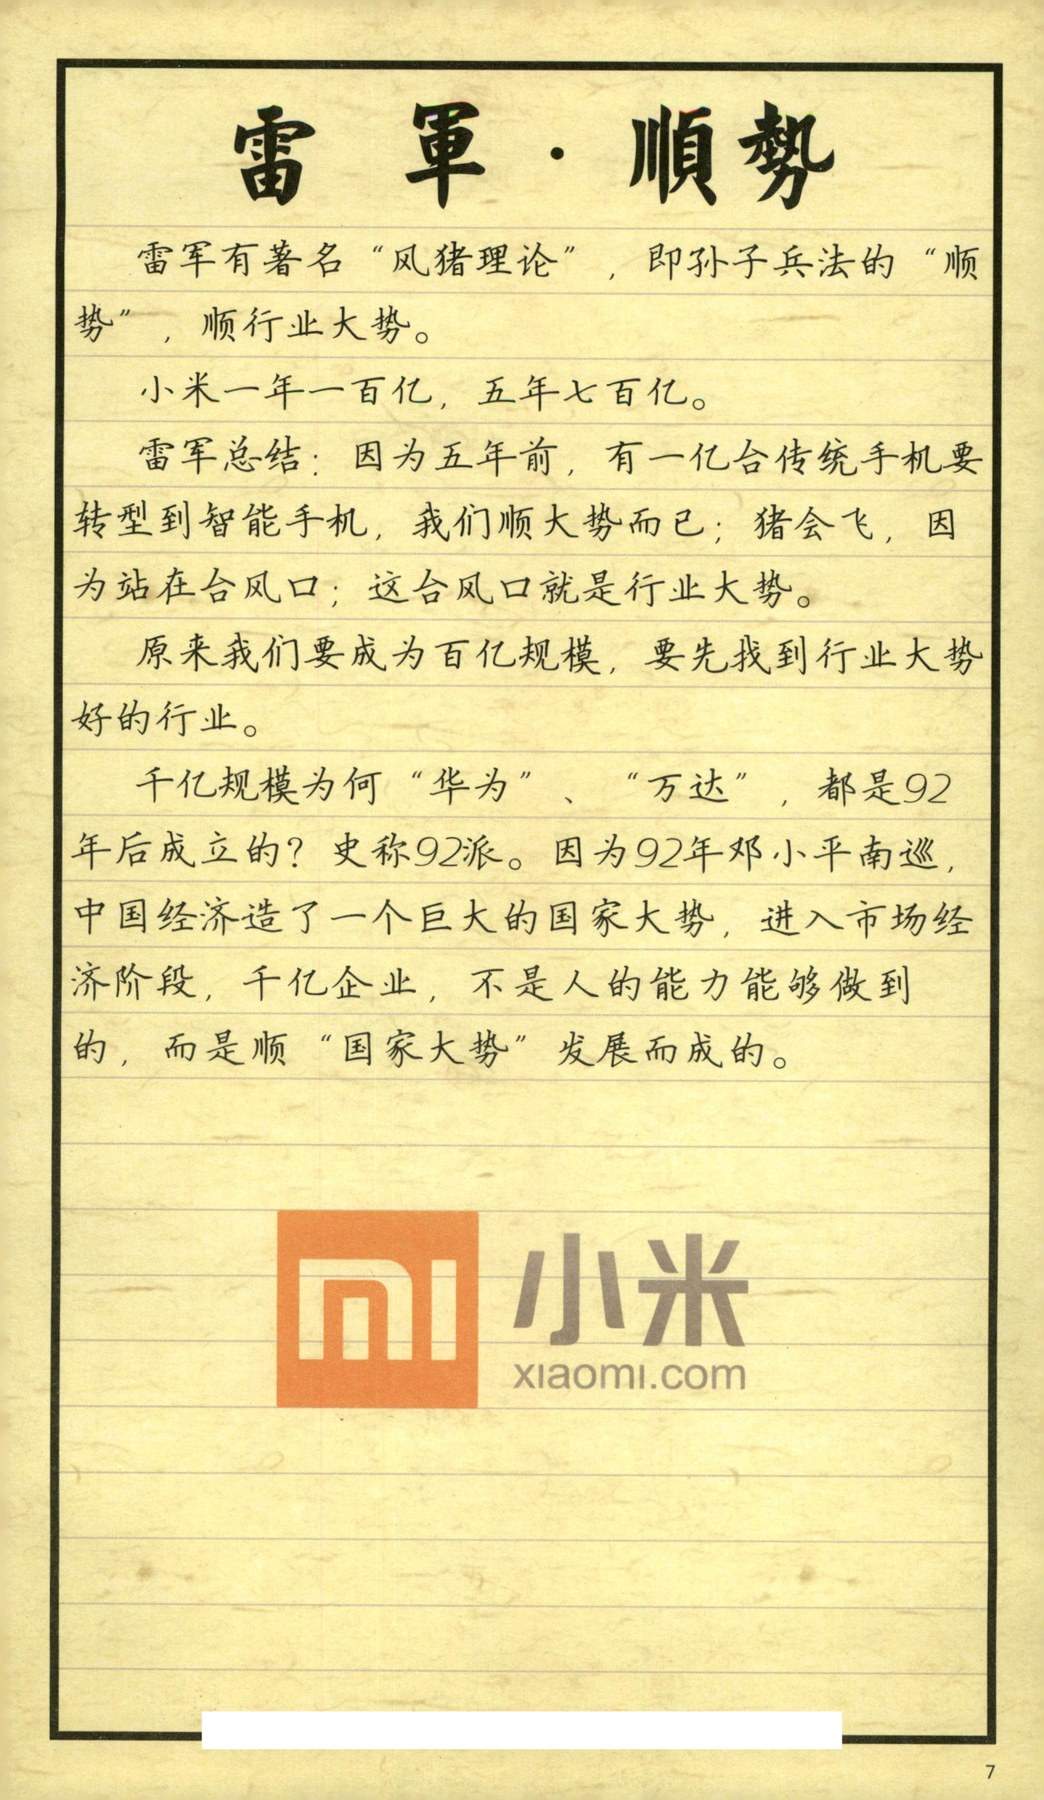 雷 軍 · 順勢
雷军有著名“风猪理论”，即孙子兵法的“顺
势”，顺行业大势。
小米一年一百亿，五年七百亿。
雷军总结：因为五年前，有一亿台传统手机要
转型到智能手机，我们顺大势而已；猪会飞，因
为站在台风口；这台风口就是行业大势。
原来我们要成为百亿规模，要先找到行业大势
好的行业。
千亿规模为何“华为”、“万达”，都是92
年后成立的？史称92派。因为92年邓小平南巡，
中国经济造了一个巨大的国家大势，进入市场经
济阶段，千亿企业，不是人的能力能够做到
的，而是顺“国家大势”发展而成的。
mi 小米
xiaomi.com
7